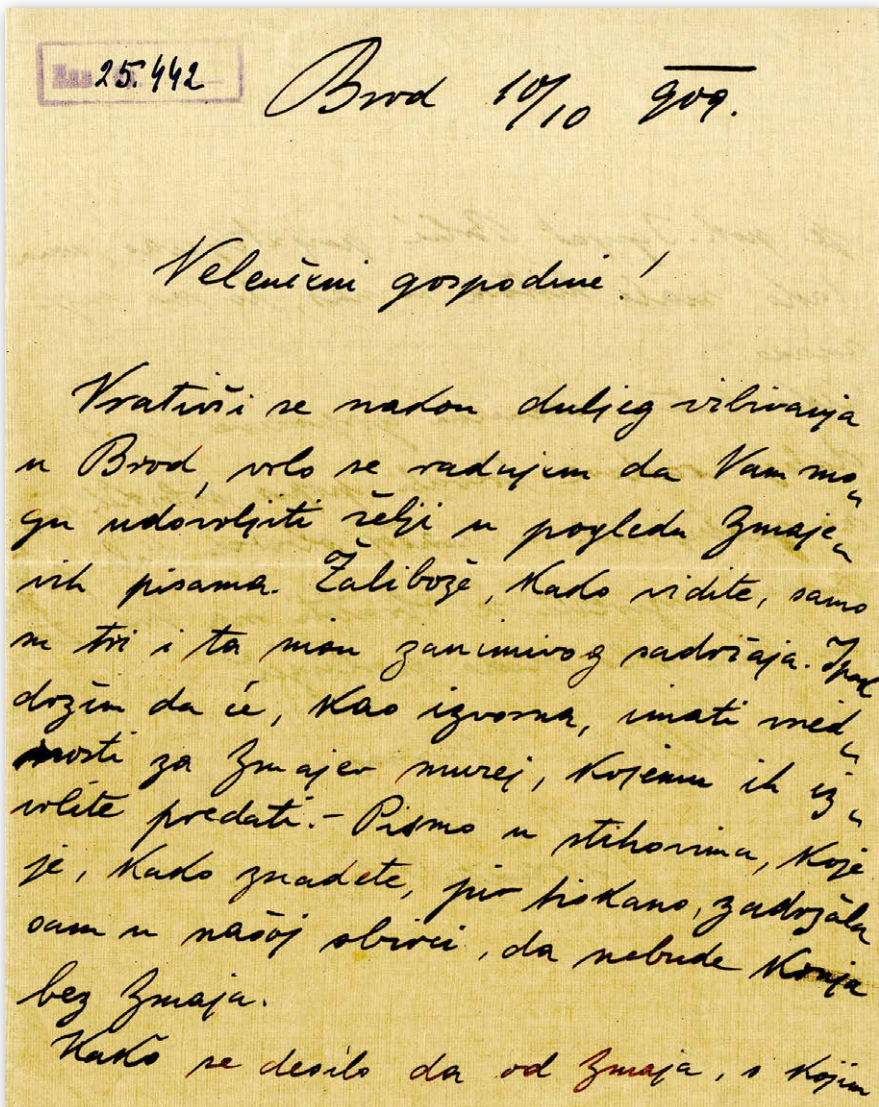 25.442
Brod 10/10 909.
Veleučeni gospodine!
Vrativši se nakon duljeg izbivanja
u Brod, vrlo se radujem da Vam mo„
gu udovoljiti želji u pogledu Zmaje„
vih pisama. Žalibože, kako vidite, samo
su tri i ta nisu zanimivog sadržaja. Ipak
držim da će, kao izvorna, imati vried„
nosti za Zmajev muzej, kojemu ih iz„
volite predati. – Pismo u stihovima, koje
je, kako znadete, već tiskano, zadržala
sam u našoj zbirci, da nebude
bez Zmaja.
Kako se desilo da od Zmaja, s kojim